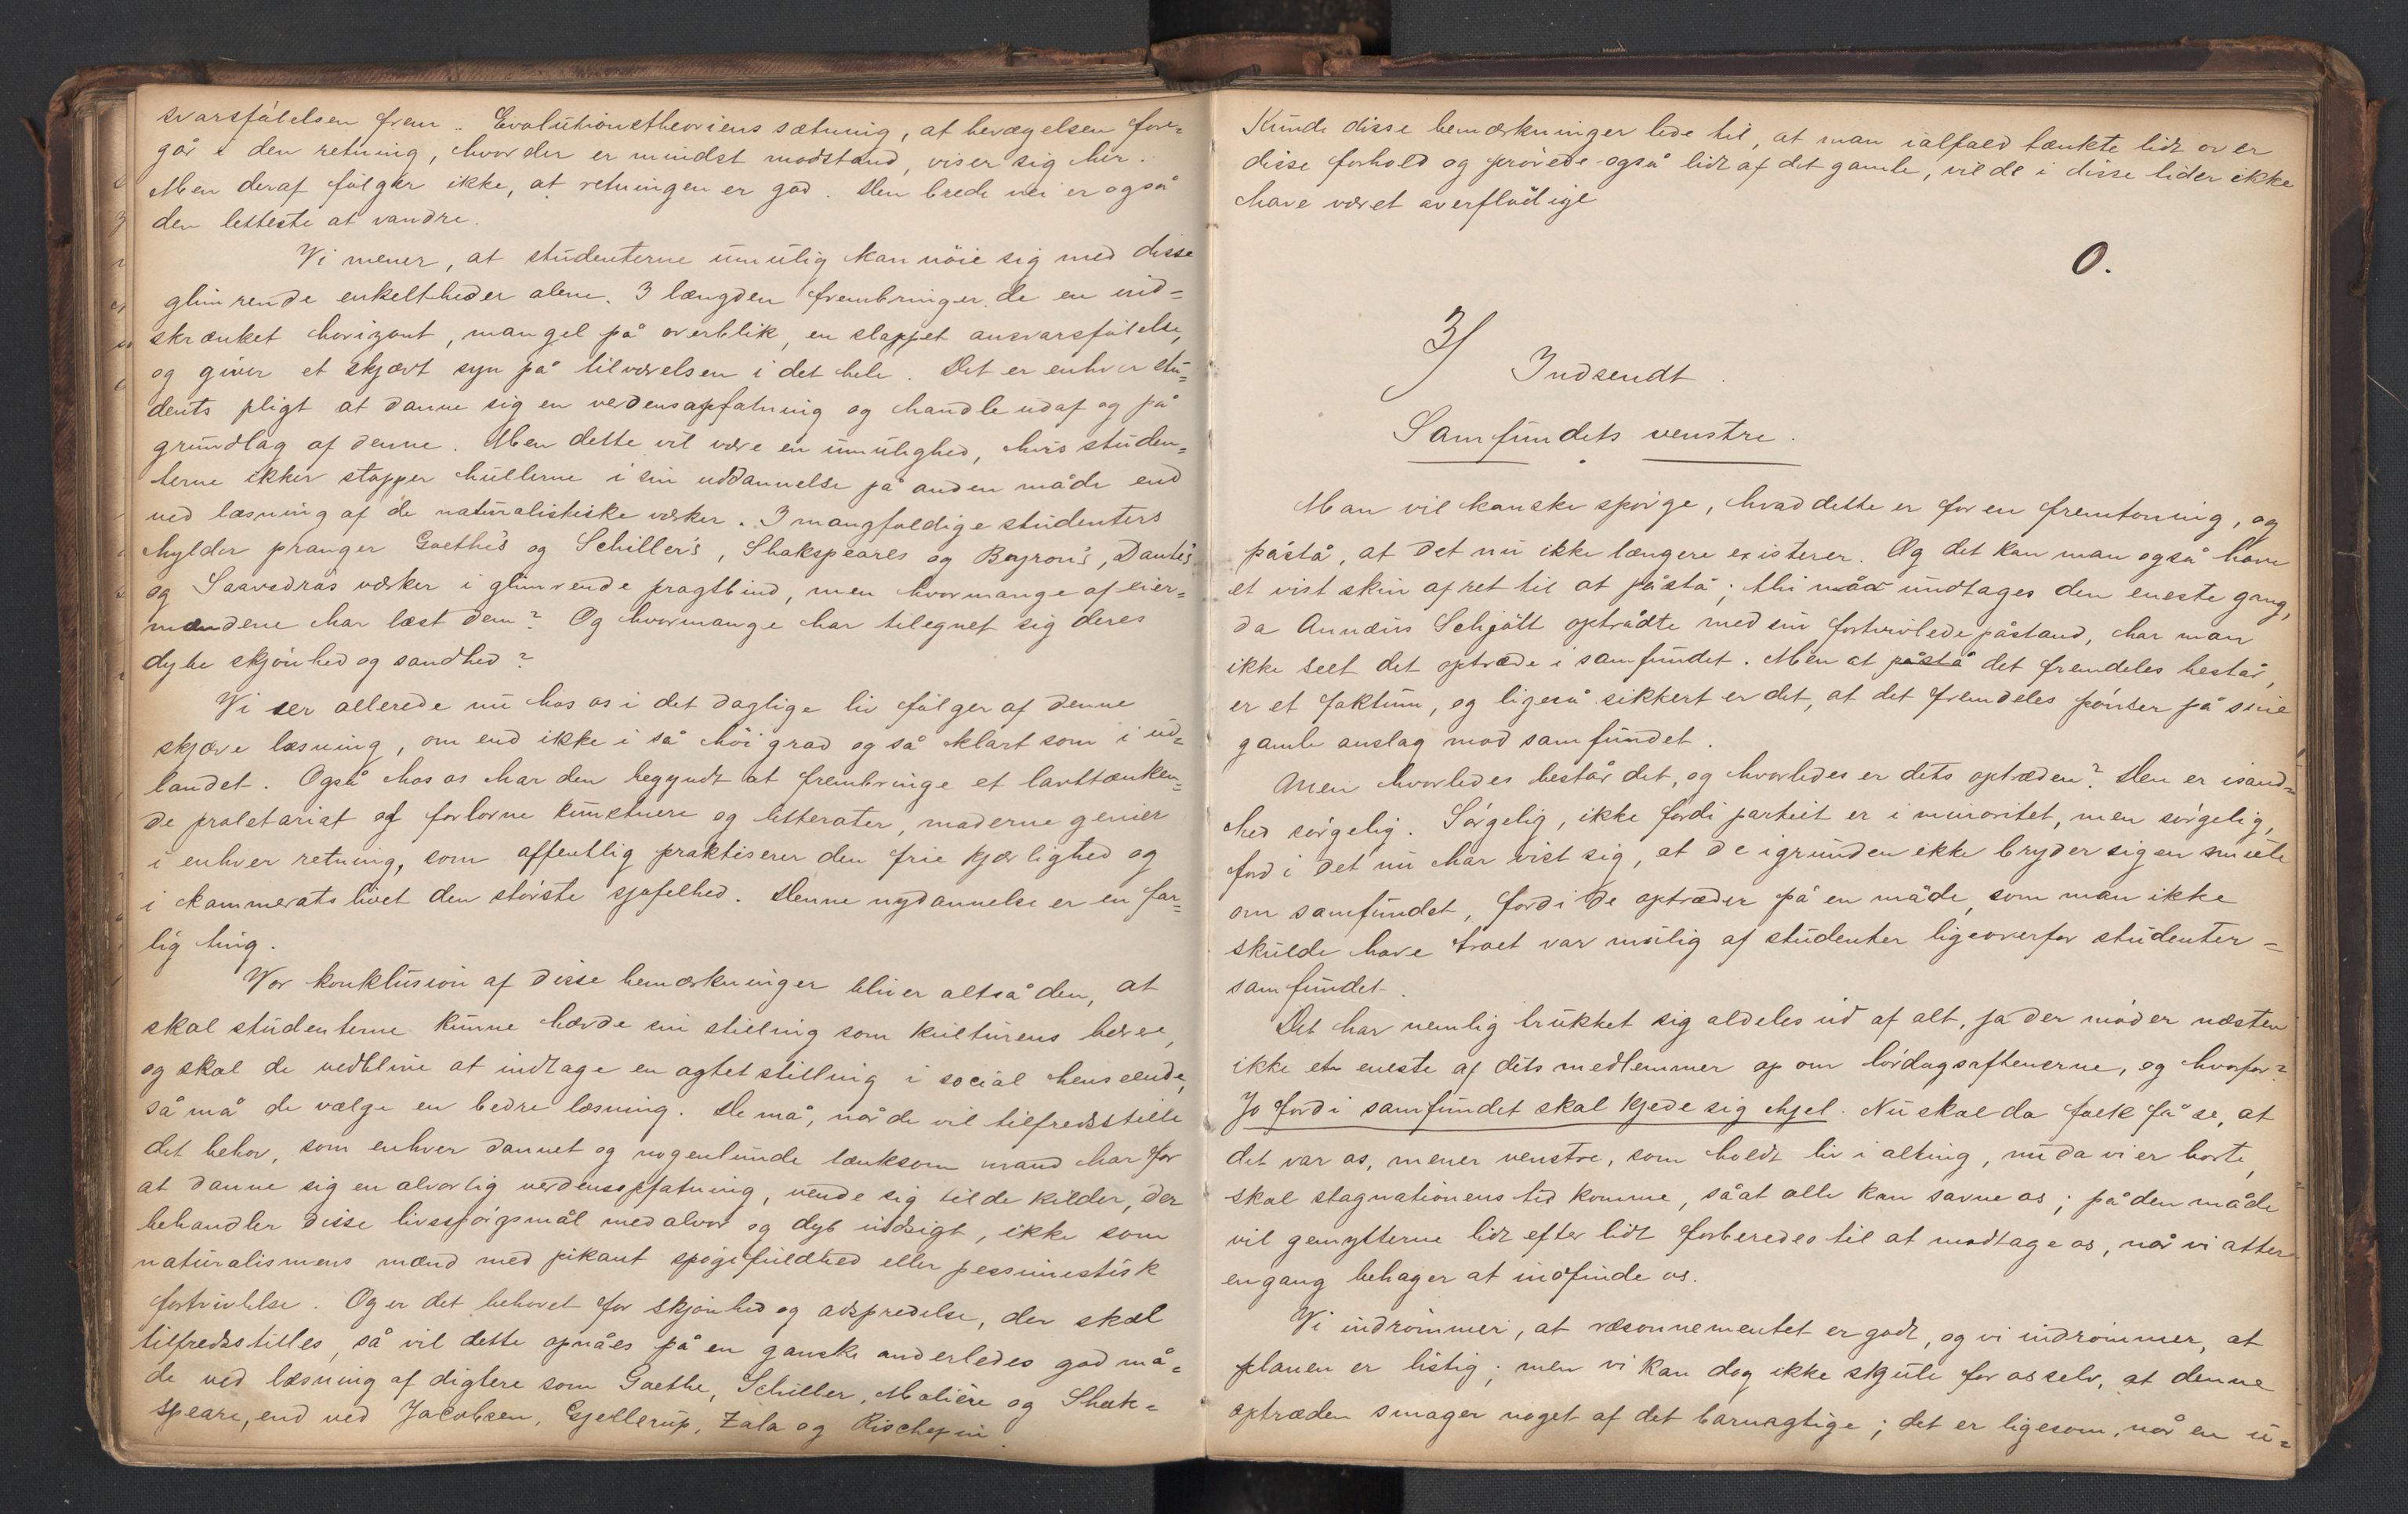 svarsfölelsen frem. Evolutionstheoriens sætning, at bevægelsen fore=
går i den retning, hvor der er mindst modstand, viser sig her.
Men deraf fölger ikke, at retningen er god. Den brede vei er også
den letteste at vandre.
Vi mener, at studenterne umulig kan nöie sig med disse
glimrende enkeltheder alene. I længden frembringer de en ind=
skrænket horizont, mangel på overblik, en slappet ansvarsfölelse,
og giver et skjævt syn på tilværelsen i det hele. Det er enhver stu=
dents pligt at danne sig en verdensopfatning og handle udaf og på
grundlag af denne. Men dette vil være en umulighed, hvis studen=
terne ikker stopper hullerne i sin uddannelse på anden måde end
ved læsning af de naturalistiske værker. I mangfoldige studenters
hylder pranger Goethe's og Schiller's, Shakspeares og Byron's, Dante's
og Saavedras værker i glimrende pragtbind, men hvormange af eier=
mændene har læst dem? Og hvormange har tilegnet sig deres
dybe skjönhed og sandhed?
Vi ser allerede nu hos os i det daglige liv fölger af denne
skjæve læsning, om end ikke i så höi grad og så klart som i ud=
landet. Også hos os har den begyndt at frembringe et lavttænken=
de proletariat af forlorne kunstnere og litterater, moderne genier
i enhver retning, som offentlig praktiserer den frie kjærlighed og
i kammeratslivet den störste sjofelhed. Denne nydannelse er en far=
lig ting.
Vor konklusion af disse bemærkninger bliver altså den, at
skal studenterne kunne hævde sin stilling som kulturens bærere,
og skal de vedblive at indtage en agtet stilling i social henseende,
så må de vælge en bedre læsning. De må, når de vil tilfredsstille
det behov, som enhver dannet og nogenlunde tænksom mand har for
at danne sig en alvorlig verdensopfatning, vende sig til de kilder, der
behandler disse livsspörgsmål med alvor og dyb indsigt, ikke som
naturalismens mænd med pikant spögefuldhed eller pessimistisk
fortvivlelse. Og er det behovet for skjönhed og adspredelse, der skal
tilfredsstilles, så vil dette opnåes på en ganske anderledes god må=
de ved læsning af digtere som Goethe, Schiller, Molière og Shak=
speare, end ved Jacobsen, Gjellerup, Zola og Richepin.
Kunde disse bemærkninger lede til, at man ialfald tænkte lidt over
disse forhold og prövede også lidt af det gamle, vil de i disse tider ikke
have været overflödige
O.
3/
Indsendt.
Samfundets venstre.
Man vil kanske spörge, hvad dette er for en fremtoning, og
påstå, at det nu ikke længere existerer. Og det kan man også have
et vist skin af ret til at påstå; thi når undtages den eneste gang,
da Annæus Schjött optrådte med sin fortvivlede påstand, har man
ikke seet det optræde i samfundet. Men at påstå det fremdeles består,
er et faktum, og ligeså sikkert er det, at det fremdeles pönser på sine
gamle anslag mod samfundet.
Men hvorledes består det, og hvorledes er dets optræden? Den er isand=
hed sörgelig. Sörgelig, ikke fordi partiet er i minoritet, men sörgelig,
fordi det nu har vist sig, at de igrunden ikke bryder sig en smule
om samfundet, fordi de optræder på en måde, som man ikke
skulde have troet var mulig af studenter ligeoverfor studenter=
samfundet.
Det har nemlig trukket sig aldeles ud af alt, ja der möder næsten
ikke et eneste af dets medlemmer op om lördagsaftenerne, og hvorfor?
Jo fordi samfundet skal kjede sig ihjel. Nu skal da folk få se, at
det var os, mener venstre, som holdt liv i alting, nu da vi er borte,
skal stagnationens tid komme, såat alle kan savne os; på den måde
vil gemytterne lidt efter lidt forberedes til at modtage os, når vi atter
engang behager at indfinde os.
Vi indrömmer, at ræsonnementet er godt, og vi indrömmer, at
planen er listig; men vi kan dog ikke skjule for os selv, at denne
optræden smager noget af det barnagtige; det er ligesom, når en u=